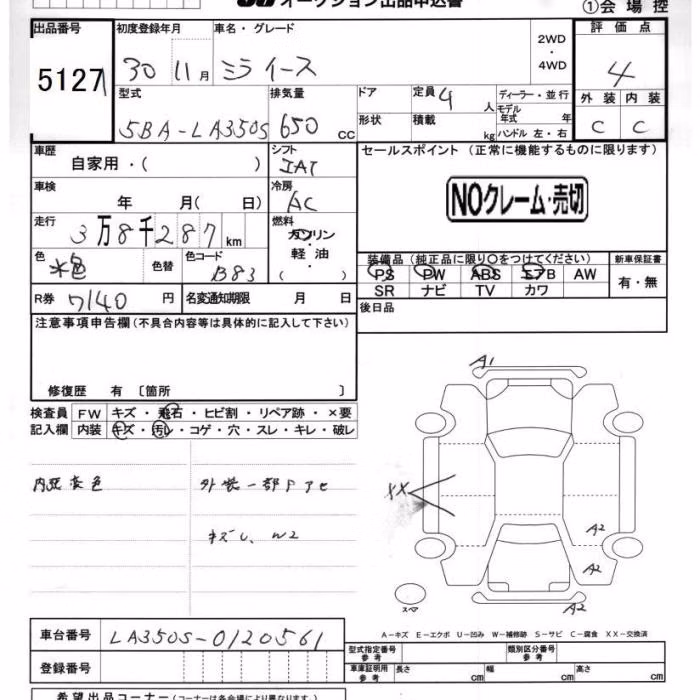 オークション出品申込書
①会場控
出品番号 初度登録年月 車名・グレード 2WD・4WD 評価点
51271 30 11月 ミライース 4
型式 排気量 ドア 定員 4人 ディーラー・並行 外装 内装
5BA-LA350S 650cc 形状 積載 kg モデル年式 年 ハンドル 左・右 C C
車歴 シフト セールスポイント (正常に機能するものに限ります)
自家用・( ) IAT
車検 冷房 NOクレーム・売切
年 月( 日) AC
走行 燃料
3万8千287km ガソリン・軽油( )
色 色替 色コード 装備品(純正品に限り○をつけてください) 新車保証書
水色 B83 PS PW ABS エアB AW 有・無
SR ナビ TV カワ
R券 7140円 名変通知期限 月 日 後日品
注意事項申告欄(不具合内容等は具体的に記入して下さい)
修復歴 有〔箇所 〕
A1
検査員 FW キズ・飛石・ヒビ割・リペア跡・×要
記入欄 内装 キズ・汚レ・コゲ・穴・スレ・キレ・破レ
外装一部
キズU、W2
XX
A2
A2
スペア
A2
A-キズ E-エクボ U-凹み W-補修跡 S-サビ C-腐食 XX-交換済
車台番号 LA350S-0120561
型式指定番号 参考 類別区分番号 参考
登録番号 車庫証明用 参考 長さ cm 幅 cm 高さ cm
希望出品コーナー(コーナーは各会場により異なります)